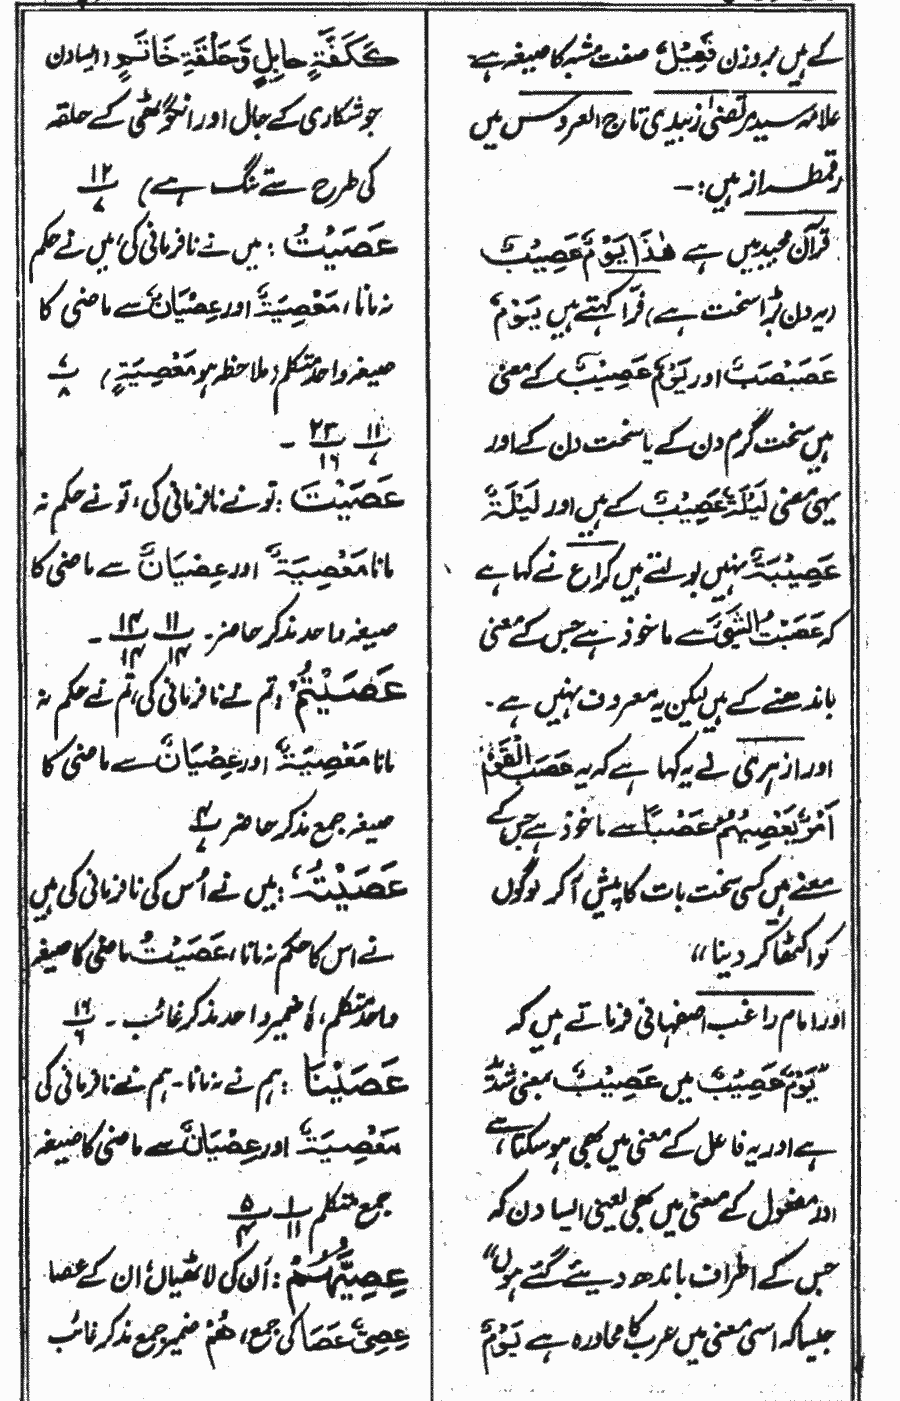 کے ہیں بروزن فَعِیْلٌ صفت مشبہ کا صیغہ ہے
علامہ سید مرتضیٰ زبیدی تاج العروس میں
رقمطراز ہیں:۔
قرآن مجید میں ہے ھٰذَا یَوْمٌ عَصِیْبٌ
(یہ دن بڑا سخت ہے) فرّا کہتے ہیں یَوْمٌ
عَصَبْصَبٌ اور یَوْمٌ عَصِیْبٌ کے معنی
ہیں سخت گرم دن کے یا سخت دن کے اور
یہی معنی لَیْلَۃٌ عَصِیْبٌ کے ہیں اور لَیْلَۃٌ
عَصِیْبَۃٌ نہیں بولتے ہیں کراع نے کہا ہے
کہ عَصَبْتُ الشَّیْءَ سے ماخوذ ہے جس کے معنی
باندھنے کے ہیں لیکن یہ معروف نہیں ہے۔
اور ازہری نے یہ کہا ہے کہ یہ عَصَبَ الْقَوْمَ
اَمْرٌ یَعْصِبُہُمْ عَصْبًا سے ماخوذ ہے جس کے
معنے ہیں کسی سخت بات کا پیش آ کر لوگوں
کو اکٹھا کر دینا ،،
اور امام راغب اصفہانی فرماتے ہیں کہ
"یَوْمٌ عَصِیْبٌ میں عَصِیْبٌ بمعنی شَدِیْدٌ
ہے اور یہ فاعل کے معنی میں بھی ہو سکتا ہے،
اور مفعول کے معنی میں بھی یعنی ایسا دن کہ
جس کے اطراف باندھ دیئے گئے ہوں"
جیسا کہ اسی معنی میں عرب کا محاورہ ہے یَوْمٌ
کَکَفَّۃِ حَابِلٍ وَّحَلْقَۃِ خَاتَمٍ (ایسا دن
جو شکاری کے جال اور انگوٹھی کے حلقہ
کی طرح سے تنگ ہے) ۱۲/۷
عَصَیْتُ: میں نے نافرمانی کی، میں نے حکم
نہ مانا، مَعْصِیَۃٌ اور عِصْیَانٌ سے ماضی کا
صیغہ واحد متکلم (ملاحظہ ہو مَعْصِیَۃٍ) ۷/۸
۱۱/۷ ۲۳/۱۶ ۔
عَصَیْتَ: تو نے نافرمانی کی، تو نے حکم نہ
مانا مَعْصِیَۃٌ اور عِصْیَانٌ سے ماضی کا
صیغہ واحد مذکر حاضر۔ ۱۱/۱۴ ۱۴/۱۴ ۔
عَصَیْتُمْ: تم نے نافرمانی کی، تم نے حکم نہ
مانا مَعْصِیَۃٌ اور عِصْیَانٌ سے ماضی کا
صیغہ جمع مذکر حاضر ۴/۷
عَصَیْتُہٗ: میں نے اُس کی نافرمانی کی میں
نے اس کا حکم نہ مانا، عَصَیْتُ ماضی کا صیغہ
واحد متکلم، ہٗ ضمیر واحد مذکر غائب ۔ ۱۶/۶
عَصَیْنَا: ہم نے نہ مانا۔ ہم نے نافرمانی کی
مَعْصِیَۃٌ اور عِصْیَانٌ سے ماضی کا صیغہ
جمع متکلم ۱/۱۱ ۵/۴
عِصِیُّہُمْ: اُن کی لاٹھیاں، ان کے عصا
عِصِیٌّ عَصَا کی جمع، ھُمْ ضمیر جمع مذکر غائب